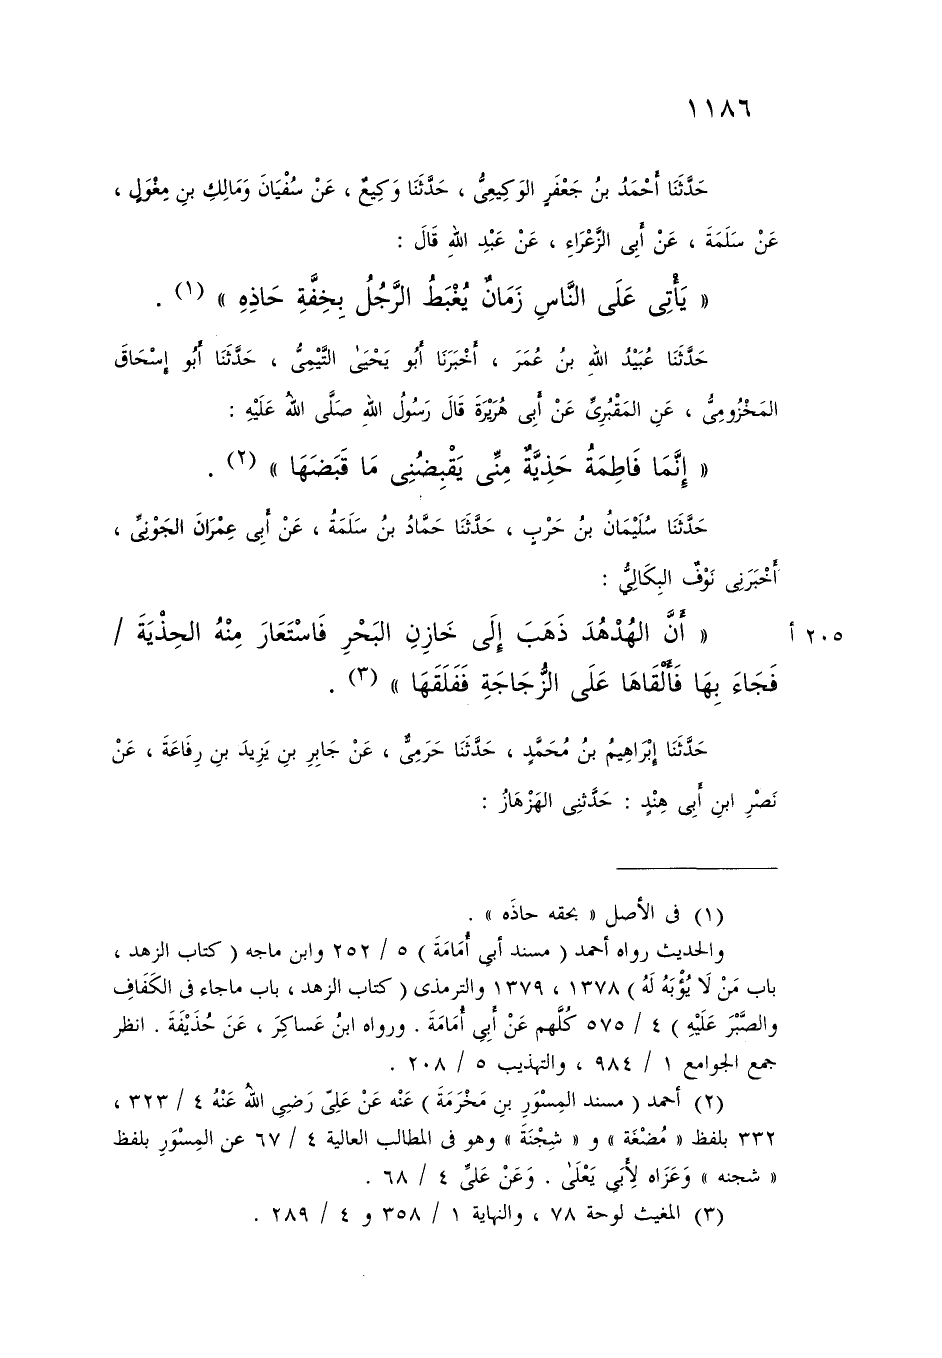 ١١٨٦
حَدَّثَنَا أَحْمَدُ بنُ جَعْفَرٍ الوَكِيعِىُّ ، حَدَّثَنَا وَكِيعٌ ، عَنْ سُفْيَانَ وَمَالِكِ بنِ مِغْوَلٍ ،
عَنْ سَلَمَةَ ، عَنْ أَبِى الزَّعْرَاءِ ، عَنْ عَبْدِ اللهِ قَالَ :
« يَأْتِى عَلَى النَّاسِ زَمَانٌ يُغْبَطُ الرَّجُلُ بِخِفَّةِ حَاذِهِ » (١) .
حَدَّثَنَا عُبَيْدُ اللهِ بنُ عُمَرَ ، أَخْبَرَنَا أَبُو يَحْيَىٰ التَّيْمِىُّ ، حَدَّثَنَا أَبُو إِسْحَاقَ
المَخْزُومِىُّ ، عَنِ المَقْبُرِىِّ عَنْ أَبِى هُرَيْرَةَ قَالَ رَسُولُ اللهِ صَلَّى اللهُ عَلَيْهِ :
« إِنَّمَا فَاطِمَةُ حَذِيَّةٌ مِنِّى يَقْبِضُنِى مَا قَبَضَهَا » (٢) .
حَدَّثَنَا سُلَيْمَانُ بنُ حَرْبٍ ، حَدَّثَنَا حَمَّادُ بنُ سَلَمَةُ ، عَنْ أَبِى عِمْرَانَ الجَوْنِىِّ ،
أَخْبَرَنِى نَوْفٌ البِكَالِيُّ :
« أَنَّ الهُدْهُدَ ذَهَبَ إِلَى خَازِنِ البَحْرِ فَاسْتَعَارَ مِنْهُ الحِذْيَةَ / ٢٠٥ أ
فَجَاءَ بِهَا فَأَلْقَاهَا عَلَى الزُّجَاجَةِ فَفَلَقَهَا » (٣) .
حَدَّثَنَا إِبْرَاهِيمُ بنُ مُحَمَّدٍ ، حَدَّثَنَا حَرَمِىٌّ ، عَنْ جَابِرِ بنِ يَزِيدَ بنِ رِفَاعَةَ ، عَنْ
نَصْرِ ابنِ أَبِى هِنْدٍ : حَدَّثَنِى الهَزْهَازُ :
(١) فى الأصل « بحقه حاذَه » .
والحديث رواه أحمد ( مسند أبي أُمَامَةَ ) ٥ / ٢٥٢ وابن ماجه ( كتاب الزهد ،
باب مَنْ لَا يُؤْبَهُ لَهُ ) ١٣٧٨ ، ١٣٧٩ والترمذى ( كتاب الزهد ، باب ماجاء فى الكَفَافِ
والصَّبْرَ عَلَيْهِ ) ٤ / ٥٧٥ كُلَّهم عَنْ أَبِي أُمَامَةَ . ورواه ابنُ عَساكِرَ ، عَنَ حُذَيْفَةَ . انظر
جمع الجوامع ١ / ٩٨٤ ، والتهذيب ٥ / ٢٠٨ .
(٢) أحمد ( مسند المِسْوَرِ بنِ مَخْرَمَةَ ) عَنْه عَنْ عَلِىّ رَضِي اللهُ عَنْهُ ٤ / ٣٢٣ ،
٣٣٢ بلفظ « مُضْغَة » و « شِجْنَة » وهو فى المطالب العالية ٤ / ٦٧ عن المِسْوَرِ بلفظ
« شجنه » وَعَزَاه لِأَبِي يَعْلَىٰ . وَعَنْ عَلىٍّ ٤ / ٦٨ .
(٣) المغيث لوحة ٧٨ ، والنهاية ١ / ٣٥٨ و ٤ / ٢٨٩ .